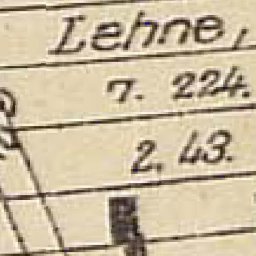 Lehne,
7. 224.
2. 43.